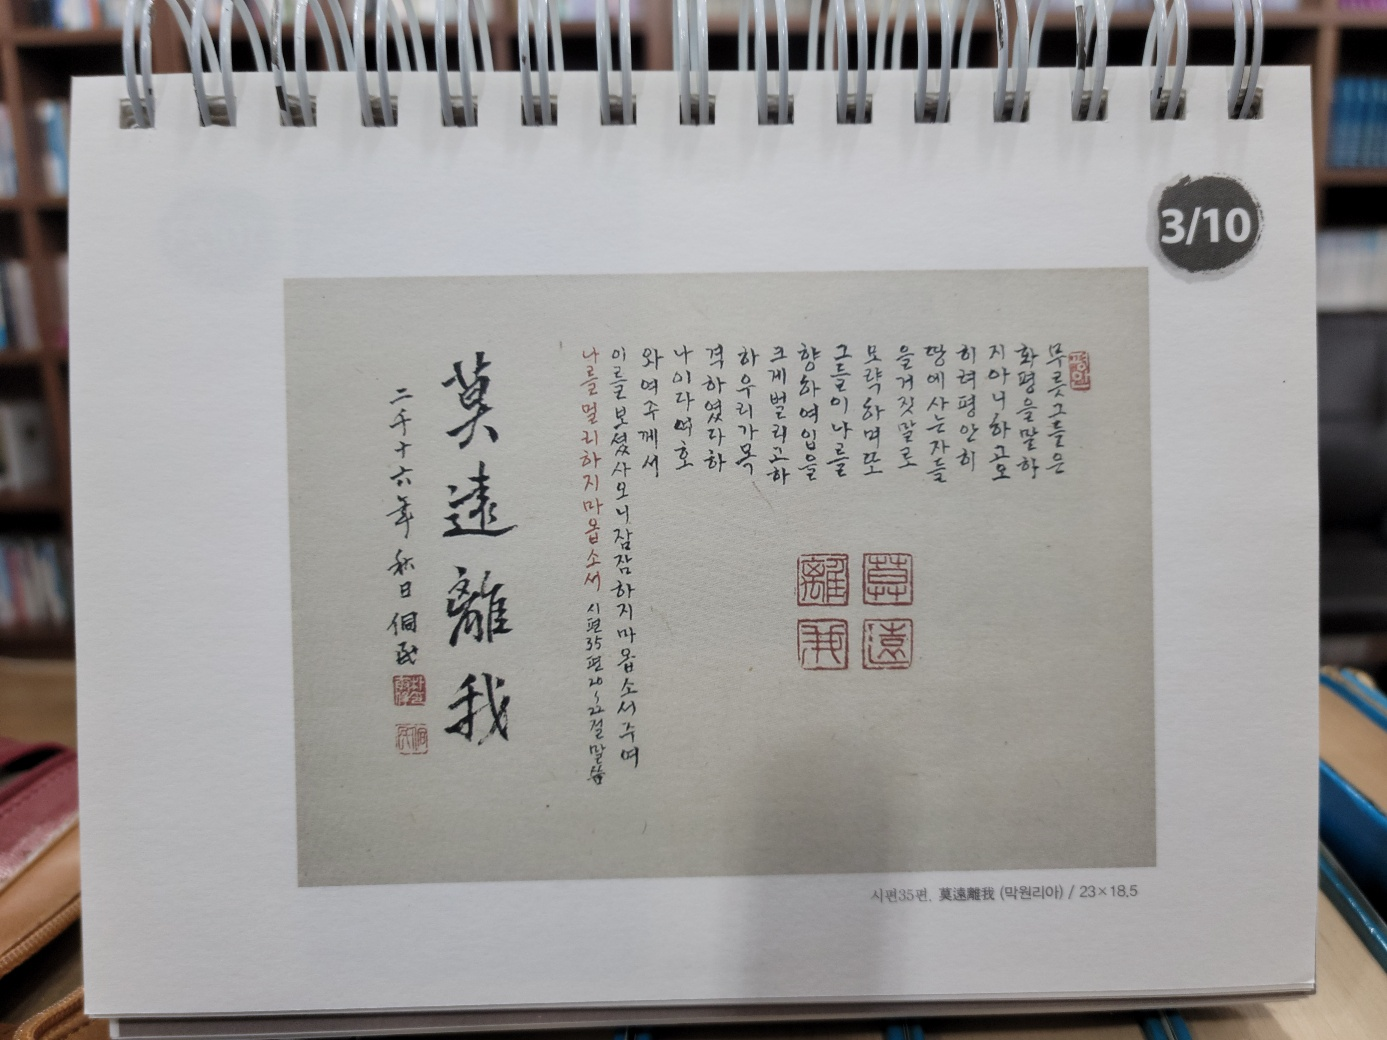 3/10
무릇그들은
화평을말하
지아니하고오
히려평안히
땅에사는자들
을거짓말로
모략하며또
그들이나를
향하여입을
크게벌리고하
하우리가목
격하였다하
나이다여호
와여주께서
이를보셨사오니잠잠하지마옵소서주여
나를멀리하지마옵소서 시편35편20~22절말씀
莫遠離我
莫遠離我
二千十六年 秋日
시편35편. 莫遠離我 (막원리아) / 23×18.5